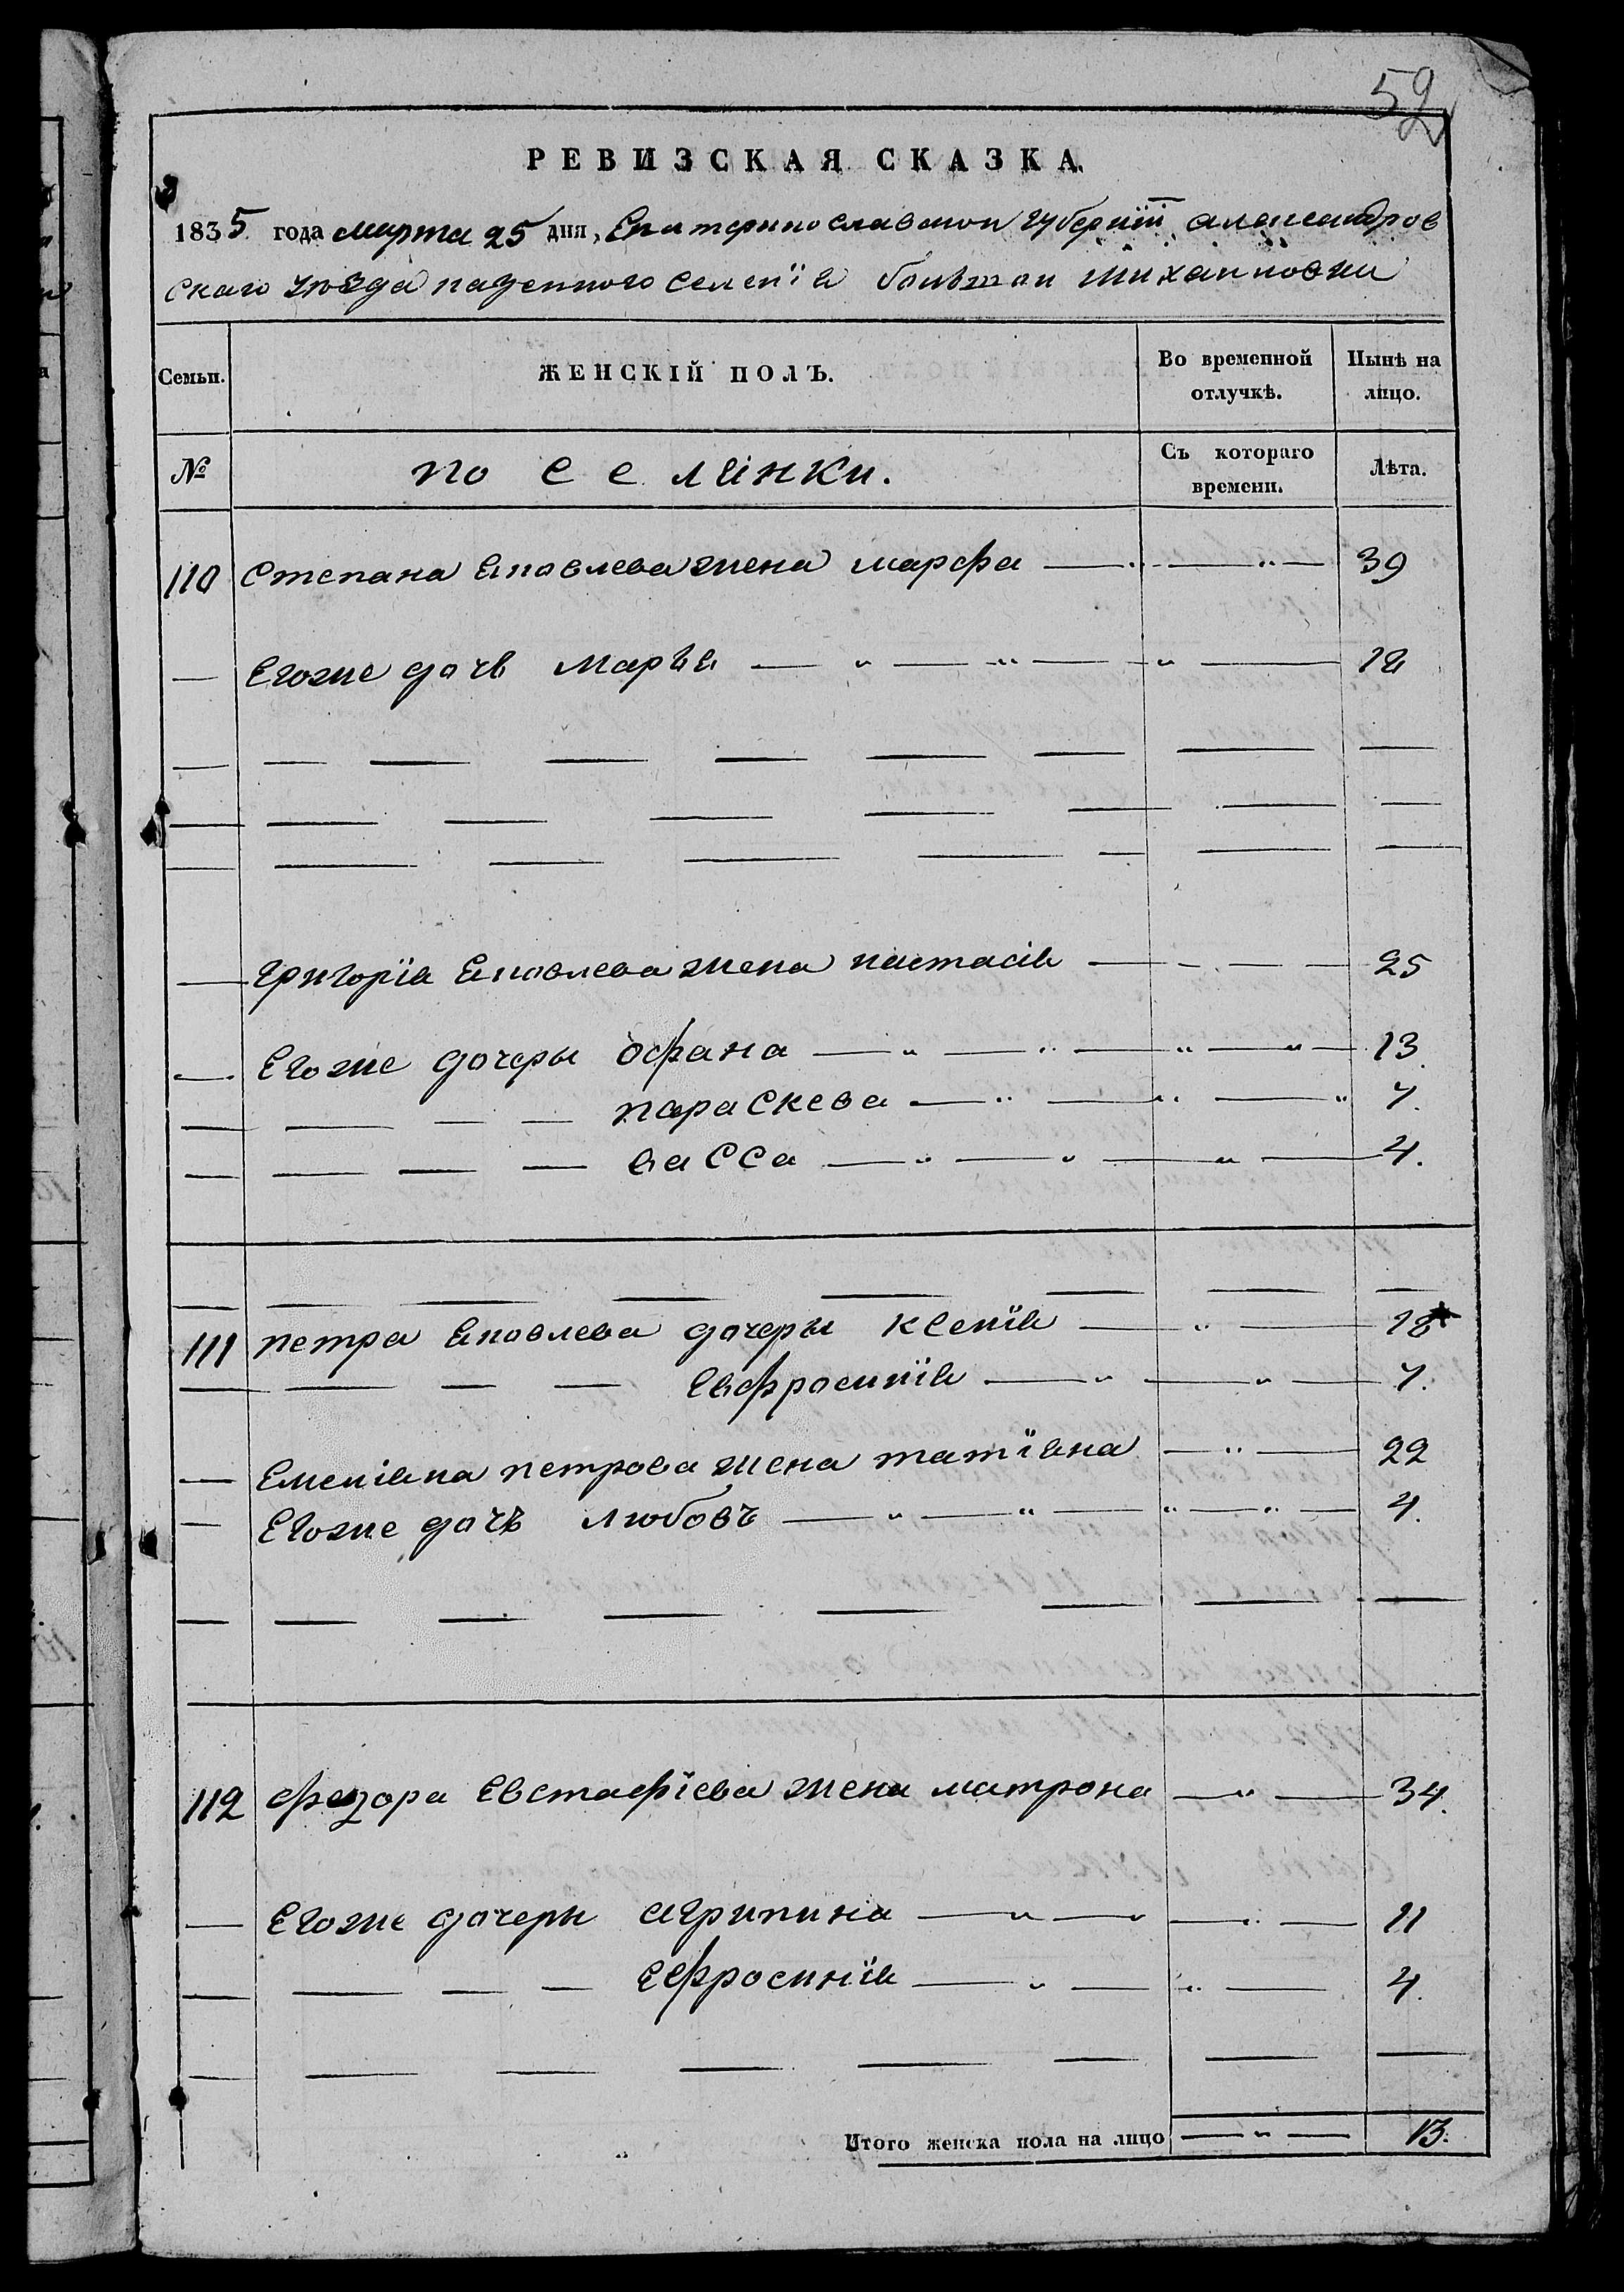 52
РЕВИЗСКАЯ СКАЗКА.
1835 года марта 25 дня, Екатеринославской губернїи александров
скаго уѣзда казенного селенїя большой михайловки
Семьи. ЖЕНСКІЙ ПОЛЪ. Во временной отлучкѣ. Нынѣ на лицо.
№ поселянки. Съ котораго времени. Лѣта.
110 Степана Яковлева жена марфа — 39
— Егоже дочь Марья — 12
— Григорїя Яковлева жена настасія — 25
— Егоже дочеры офана — 13.
— параскева — 7.
— васса — 4.
111 петра Яковлева дочеры ксенїя — 18
— Евфросинїя — 7.
— Емеліяна петрова жена татїяна — 22
— Егоже дочь любовъ — 4.
112 федора Евстафїева жена матрона — 34.
— Егоже дочеры агрипина — 11
— Ефросинїя — 4.
Итого женска пола на лицо — 13.